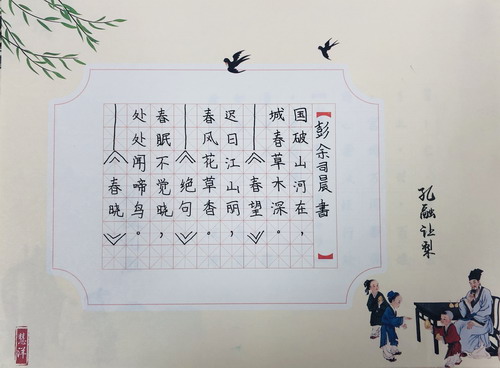 【彭余司晨書】
国破山河在，
城春草木深。
——《春望》
迟日江山丽，
春风花草香。
——《绝句》
春眠不觉晓，
处处闻啼鸟。
——《春晓》
孔融让梨
慧洋